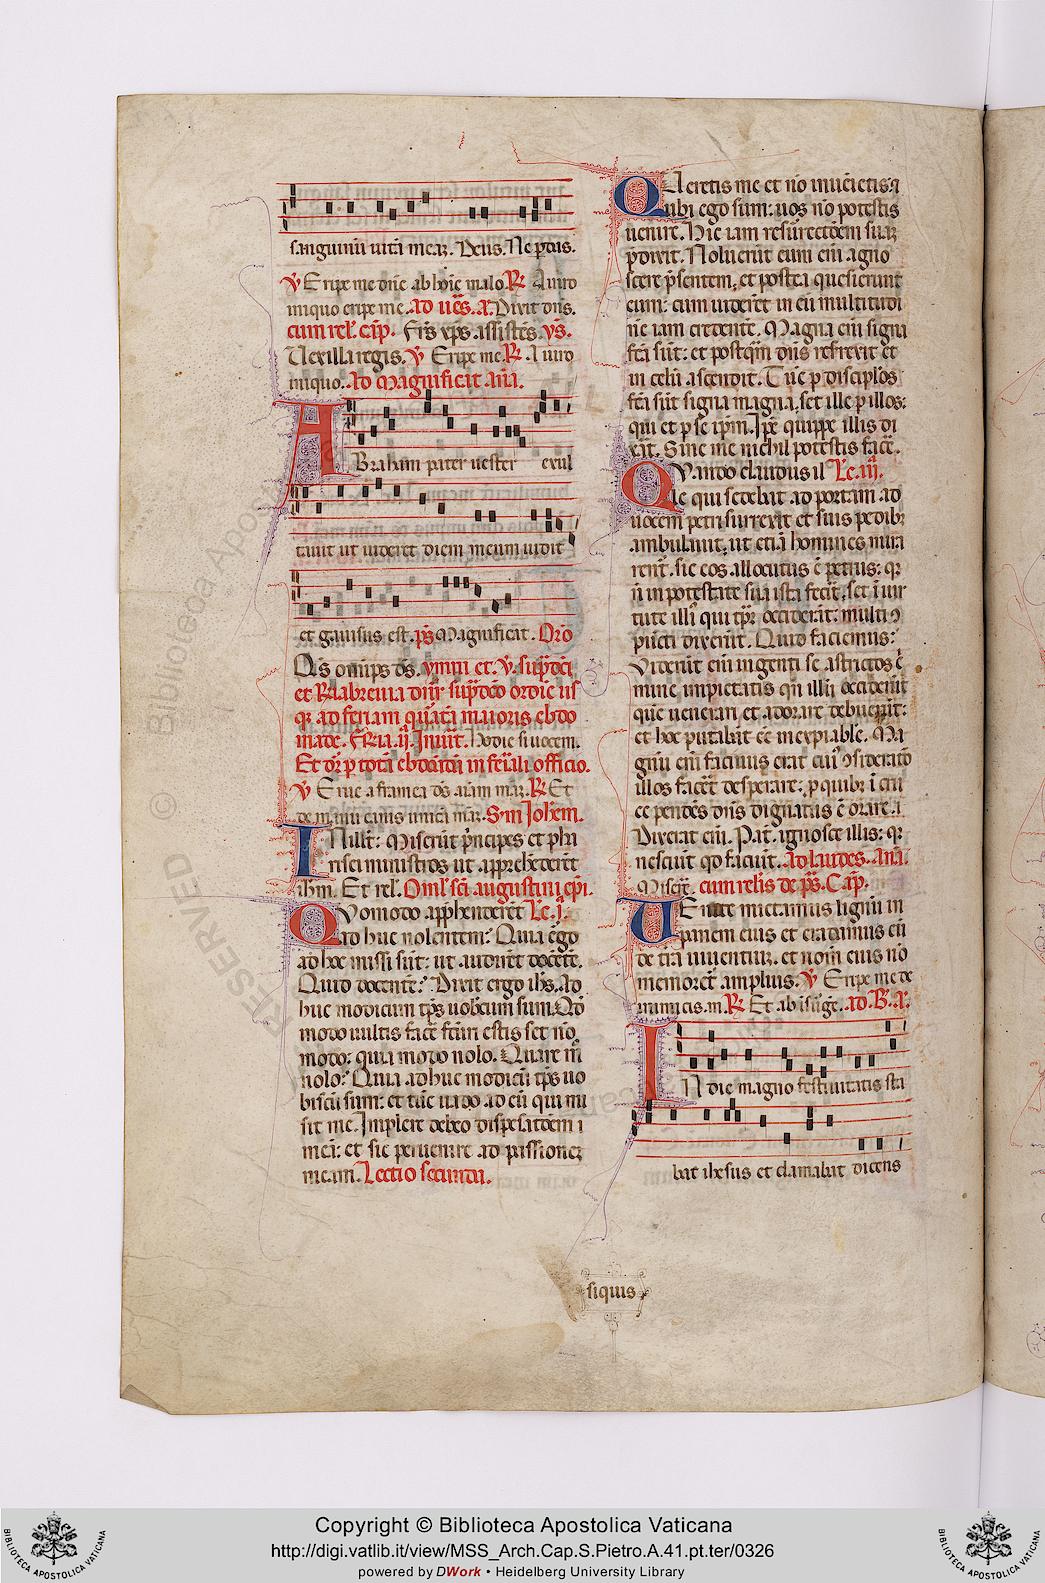 sanguinū uitā meaꝫ. Deus. Ne ꝑdas.
℣ Eripe me dn̄e ab hoīe malo ℟ A uiro
iniquo eripe me. ad uēs. a. Dixit dn̄s.
cum rel̄. cap̄. Fr̄s xp̄s assistēs. ys.
Uexilla regis. ℣ Eripe me. ℟ A uiro
iniquo. Ad magnificat. Aña.
Abraham pater uester exul
tauit ut uideret diem meum uidit
et gauisus est. ps̄ Magnificat. Orō
Qs om̄ps ds̄. ymni et. ℣. sup̄dc̄i
et ℟labreuia dn̄r sup̄dc̄o ordīe us
qꝫ ad feriam quītā maioris ebdo
made. FERIA. ij. Inuit. hodie si uocem.
Et dr̄ ꝑ totā ebdōadā in feriali officio.
℣ Erue a framea ds̄ aīam meaꝫ. ℟ Et
de manu canis unicā meaꝫ. S'm Joh̄em.
IN ill' t̄: Miserūt pͥncipes et pha
risei ministros ut apprehēderēt
ih̄m. Et rel̄. Oml̄ sc̄i augustini ep̄i.
Quomodo apphenderēt Lc̄. j.
ad huc nolentem? Quia ego
ad hoc missi sūt: ut audirēt docētē.
Quid docente? Dixit ergo ih̄s. Ad
huc modicum tp̄s uobiscum sum. Qd̄
modo uultis facē fcūri estis set nō
modo: quia modo nolo. Quare m̄
nolo? Quia adhuc modicū tp̄s uo
biscū sum: et tūc uado ad eū qui mi
sit me. Implere debeo dispēsatōem
meā: et sic peruenire ad passioneꝫ
meam. Lectio secunda.
Queretis me et nō inuēietis: ⁊
ubi ego sum: uos nō potestis
uenire. Hic iam resurrectōem suaꝫ
ꝑdixit. Noluerūt eum eīm agno
scere p̄sentem, et postea quesierunt
eum: cum uiderēt in eū multitudi
nē iam credentē. Magna eīm signa
fc̄a sūt: et postqͣm dn̄s resurexit et
in celū ascendit. Tūc ꝑ discipl̄os
fc̄a sūt signa magna, set ille ꝑ illos:
qui et ꝑ se ip̄m. Ip̄e quippe illis di
xit. Sine me nichil potestis facē.
Quando claudus il Lc̄. iij.
le qui sedebat ad portam ad
uocem petri surrexit et suis pedibꝫ
ambulauit, ut etiā homines mira
rent̄. sic eos allocutus ē petrus: qꝫ
n̄ in potestate sua ista fecit, set ī uir
tute illiꝰ qui tp̄r occiderāt: multi ꝯ
pūcti dixerūt. Quid faciemus?
Viderūt eīm ingenti se astrictos cͥ
mine impietatis qn̄ illū occiderūt
quē uenerari et adorare debuerāt:
et hoc putabāt eē inexpiabile. Ma
gnū eīm facinus erat cuiꝰ ꝯsideratō
illos facēt desperare: ꝑ quibꝫ ī cru
ce pendēs dn̄s dignatus ē orare.
Dixerat eīm. Pat̄. ignosce illis: qꝫ
nesciūt qd faciūt. Ad laudes. Aña.
Miserē. cum relīs de ps̄. Cap̄.
Uenite mictamus lignū in
panem eius et eradamus eū
de t̄ra uiuentiuꝫ. et nomē eius nō
memoret̄ amplius. ℣ Eripe me de
inimicis. m̄. ℟ Et ab isurge. ad. B̄. a.
In die magno festiuitatis sta
bat ihesus et clamabat dicens
siquis
Copyright © Biblioteca Apostolica Vaticana
http://digi.vatlib.it/view/MSS_Arch.Cap.S.Pietro.A.41.pt.ter/0326
powered by DWork • Heidelberg University Library